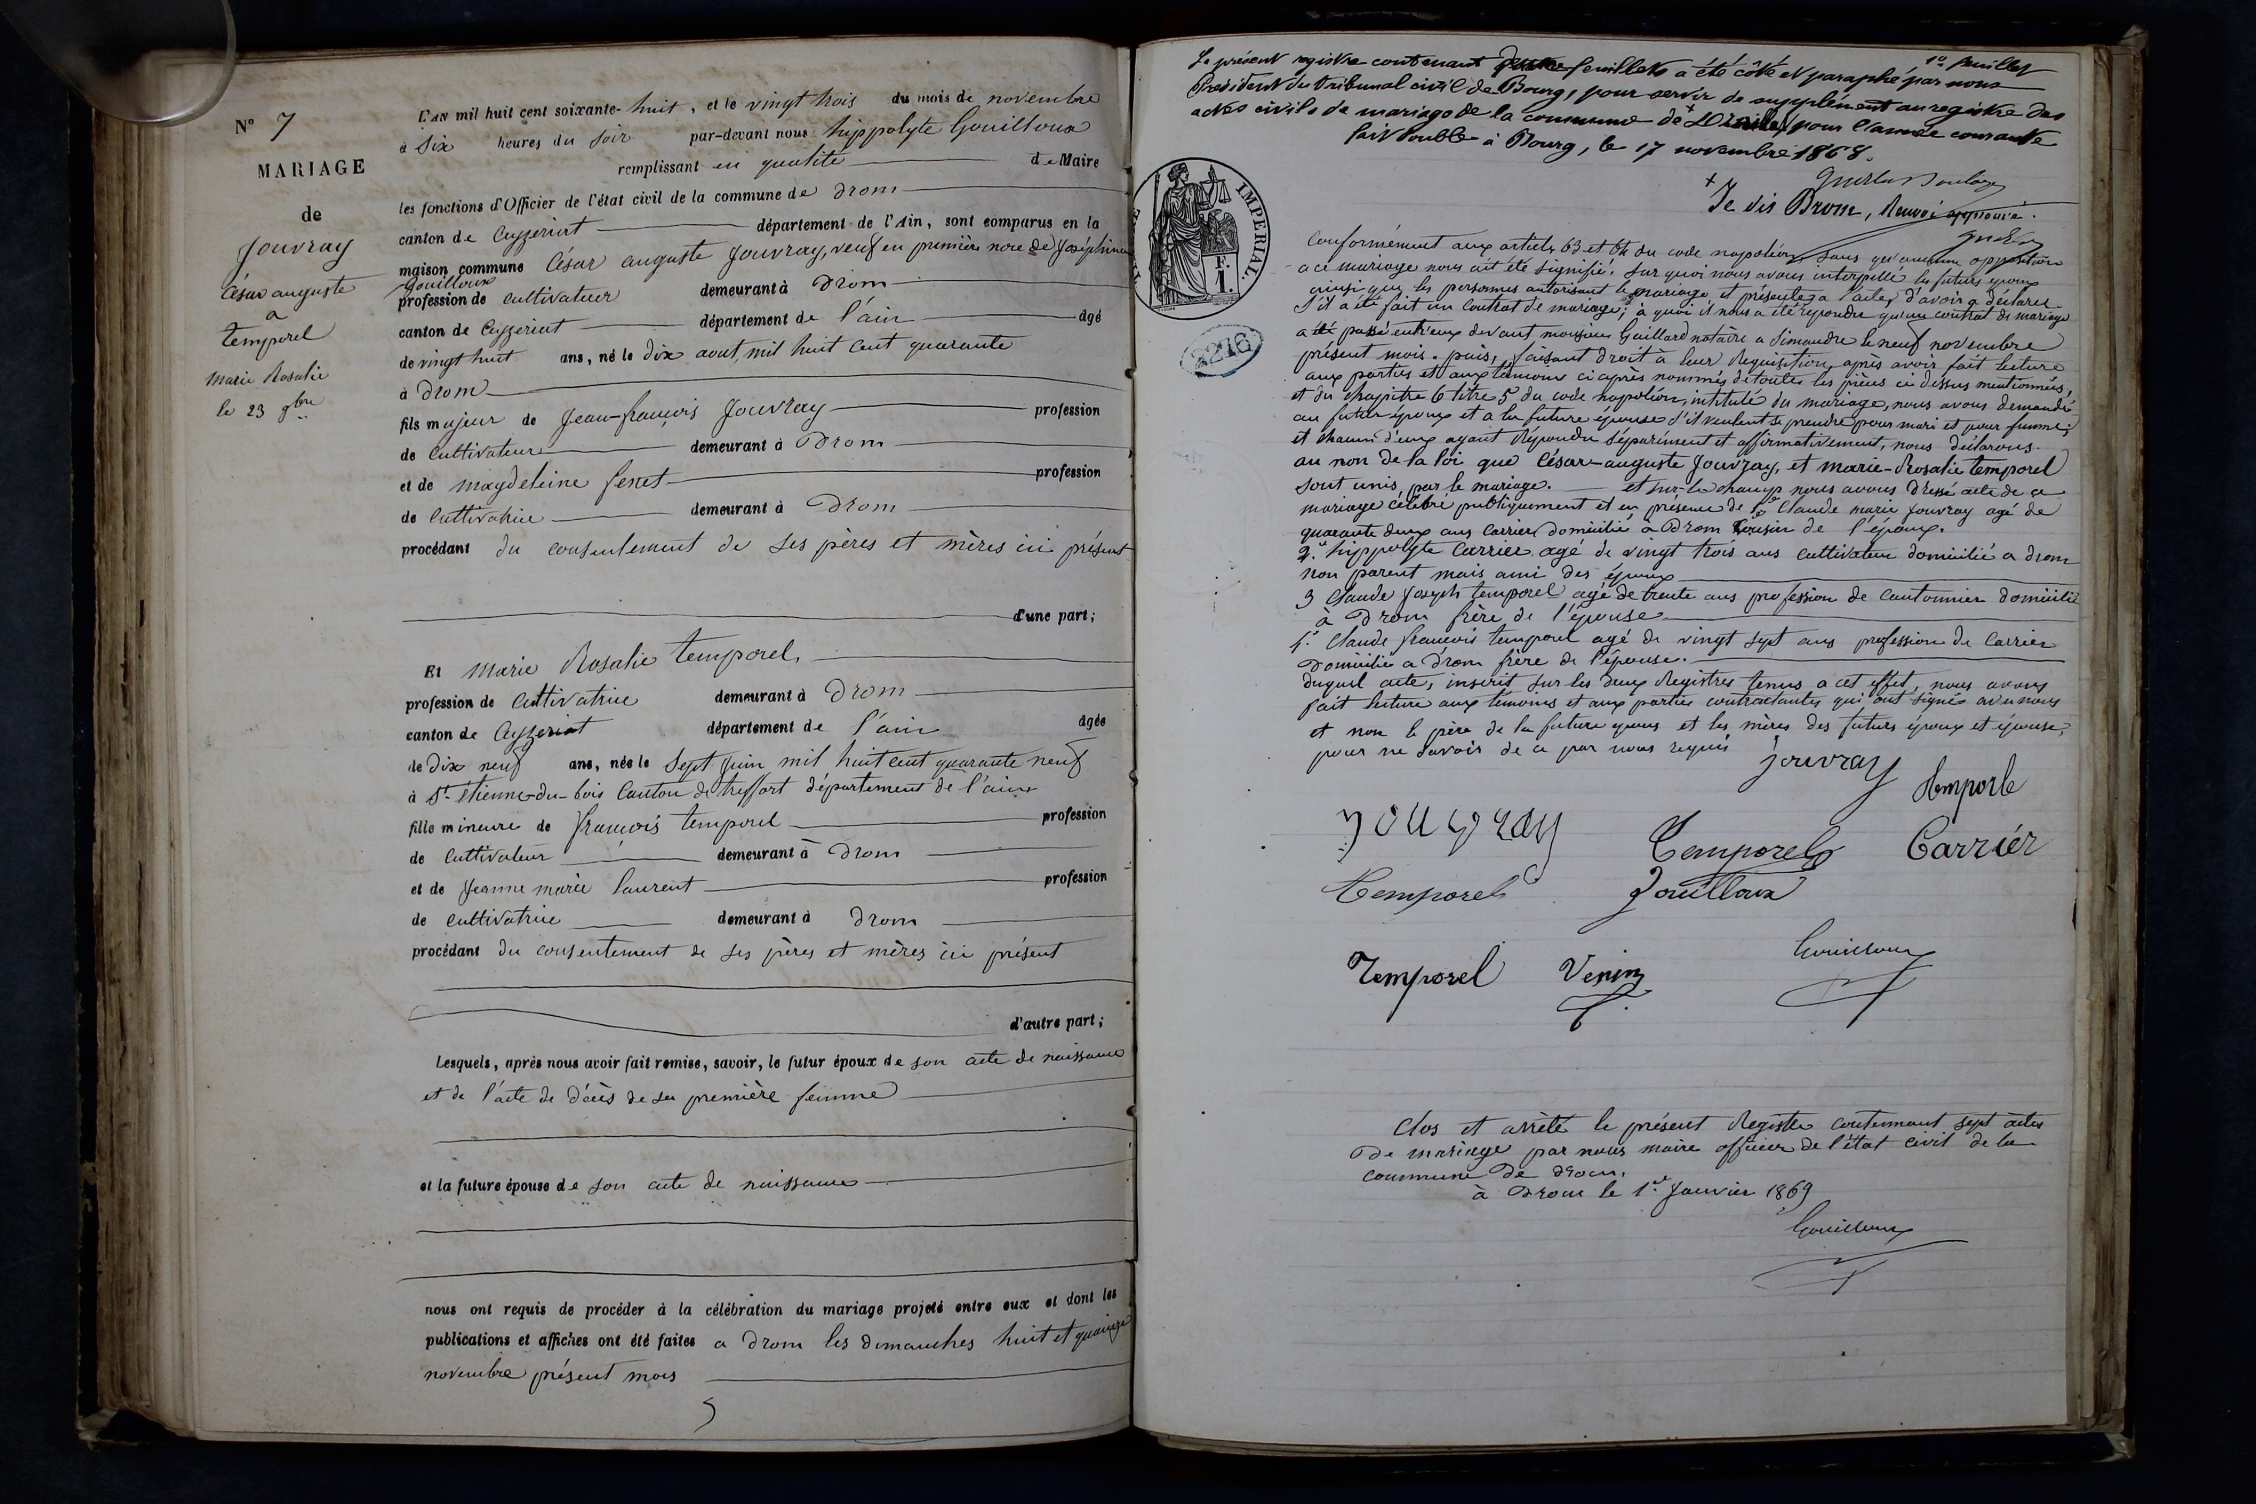 N° 7
MARIAGE
de
Jouvray
César auguste
a
temporel
Marie Rosalie
le 23 9bre
L'AN mil huit cent soixante-huit, et le vingt trois du mois de novembre
à Six heures du Soir par-devant nous hippolyte Gouilloux
remplissant en qualité de Maire
les fonctions d'Officier de l'état civil de la commune de Drom
canton de Ceyzeriat département de l'Ain, sont comparus en la
maison commune César auguste Jouvray, veuf en première noce de Joséphine
Gouilloux
profession de cultivateur demeurant à Drom
canton de Ceyzeriat département de l'ain âgé
de vingt huit ans, né le dix aout mil huit cent quarante
à Drom
fils majeur de Jean-françois Jouvray profession
de Cultivateur demeurant à Drom
et de magdeleine profession
de Cultivatrice demeurant à Drom
procédant du consentement de ses pères et mères ici présent
d'une part;
Et Marie Rosalie temporel
profession de Cultivatrice demeurant à Drom
canton de Ceyzeriat département de l'ain âgée
de dix neuf ans, née le Sept Juin mil huit cent quarante neuf
à St étienne-du-bois Canton de treffort département de l'ain
fille mineure de françois temporel profession
de Cultivateur demeurant à Drom
et de Jeanne marie laurent profession
de Cultivatrice demeurant à Drom
procédant du consentement de ses pères et mères ici présent
d'autre part;
Lesquels, après nous avoir fait remise, savoir, le futur époux de son acte de naissance
et de l'acte de décès de sa première femme
et la future épouse de son acte de naissance
nous ont requis de procéder à la célébration du mariage projeté entre eux et dont les
publications et affiches ont été faites a Drom les dimanches huit et quinze
novembre présent mois
1er feuillet
Le présent registre contenant feuillets a été côté et paraphé par nous
Président du tribunal civil de Bourg, pour servir de supplément au registre des
actes civils de mariage de la commune de + pour l'année courante
fait double à Bourg, le 17 novembre 1868.
+ Je dis Drom, Renvoi approuvé.
IMPERIAL.
F.
1.
2216
Conformément aux articles 63 et 64 du code napoléon, sans qu'aucune opposition
a ce mariage nous ait été signifié. Sur quoi nous avons interpellé les futurs époux
ainsi que les personnes autorisant le mariage et présente a l'acte, d'avoir a déclarer
S'il a été fait un Contrat de mariage; à quoi il nous a été répondu qu'un contrat de mariage
a été passé entr'eux devant monsieur Gaillard notaire a Simandre le neuf novembre
présent mois. puis, faisant droit à leur Requisition, après avoir fait lecture
aux parties et aux témoins ci après nommés de toutes les pièces ci dessus mentionnées,
et du chapitre 6 titre 5 du code napoléon, intitulé du mariage, nous avons demandé
au futur époux et a la future épouse s'il veulent se prendre pour mari et pour femme;
et chacun d'eux ayant répondu séparément et affirmativement, nous déclarons
au nom de la loi que César-auguste Jouvray, et marie-Rosalie temporel
sont unis par le mariage. et sur-le champ nous avons dressé acte de ce
mariage célébré publiquement et en présence de 1° Claude marie Jouvray agé de
quarante deux ans Carrier, domicilié à Drom Cousin de l'époux.
2.° hippolyte Carrier agé de vingt trois ans cultivateur domicilié a drom
non parent mais ami des époux
3 Claude Joseph temporel agé de trente ans profession de Cantonnier domicilié
à Drom frère de l'épouse
4.° Claude françois temporel agé de vingt sept ans profession de Carrier
Domicilié a Drom frère de l'épouse.
Duquel acte, inscrit sur les deux Registres tenus a cet effet, nous avons
fait lecture aux témoins et aux parties contractantes qui ont signés avec nous
et non le père de la future et les mères des futurs époux et épouse,
pour ne savoir de ce par nous requis
Jouvray
temporle
jouvray
Temporel
Carrier
Temporel
Jouilloux
Temporel
Gouilloux
Clos et arrêté le présent Registre contenant sept actes
De mariage par nous maire officier de l'état civil de la
commune de Drom.
à Drom le 1er Janvier 1869
Gouilloux